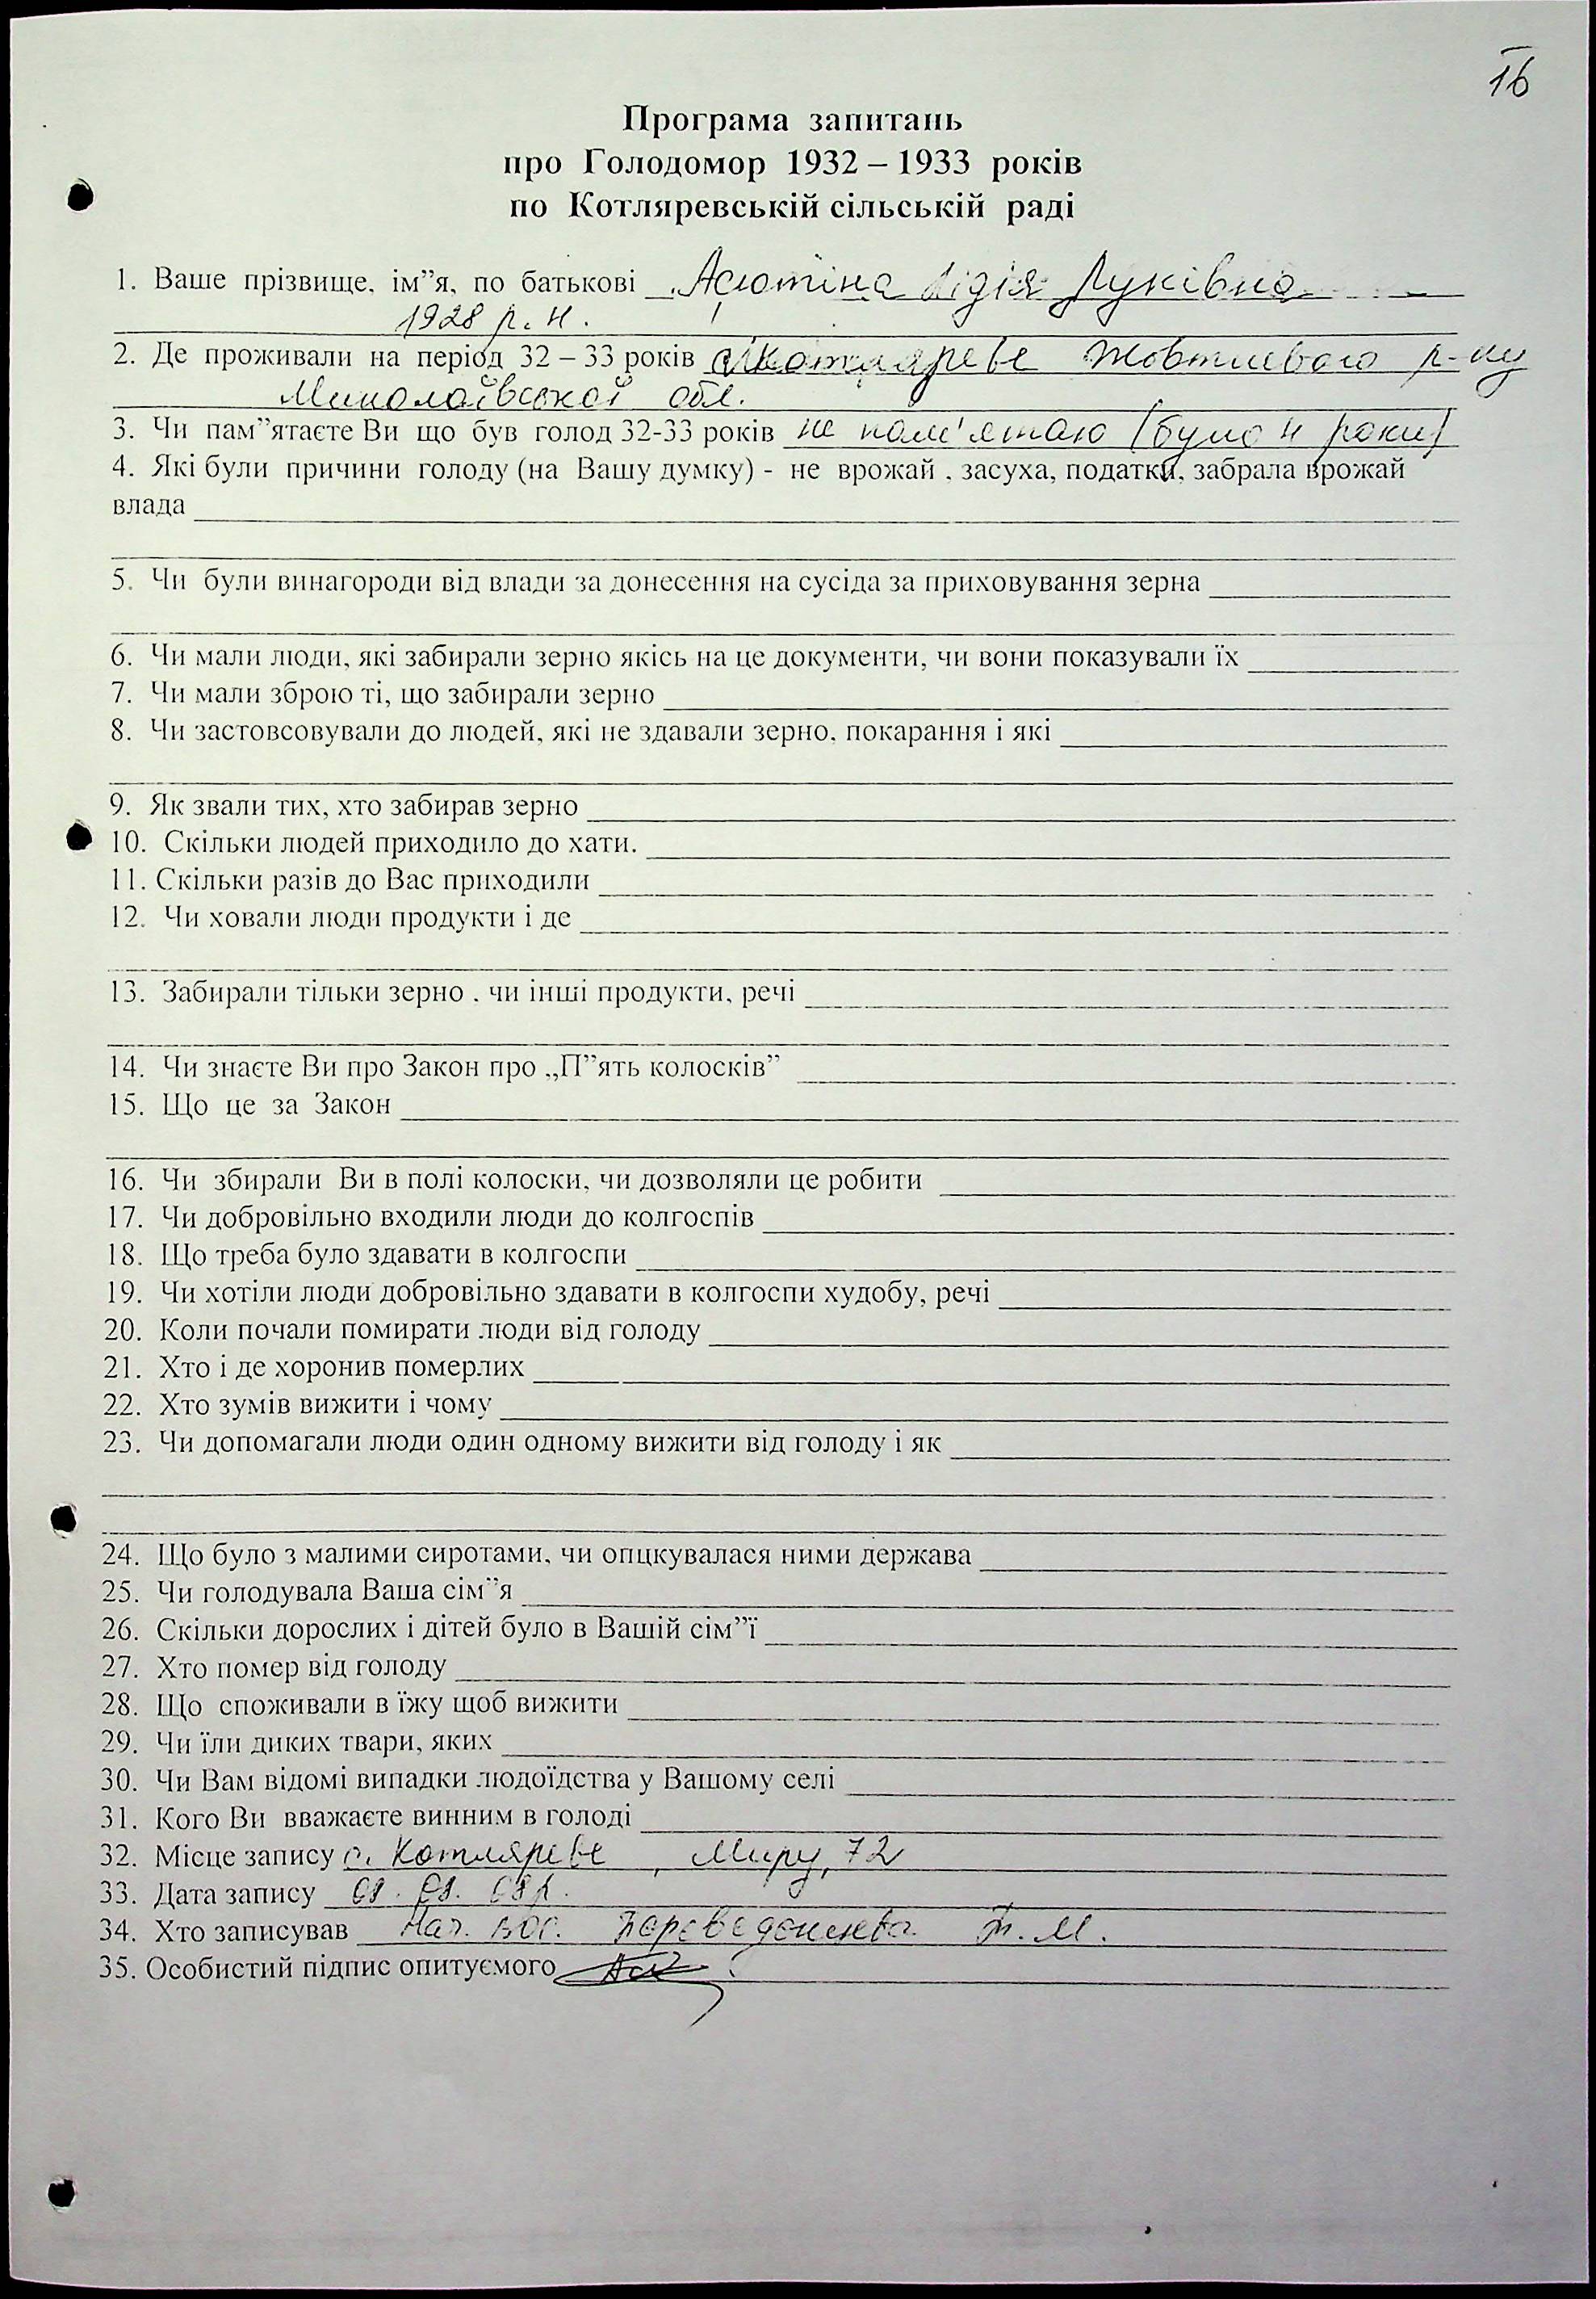 16
Програма запитань
про Голодомор 1932 – 1933 років
по Котляревській сільській раді
1. Ваше прізвище, ім"я, по батькові Асютіна Лідія Луківна
1928 р. н.
2. Де проживали на період 32 – 33 років с. Котляреве Жовтневого р-ну
Миколаївської обл.
3. Чи пам"ятаєте Ви що був голод 32-33 років не пам'ятаю (було 4 роки)
4. Які були причини голоду (на Вашу думку) - не врожай , засуха, податки, забрала врожай
влада
5. Чи були винагороди від влади за донесення на сусіда за приховування зерна
6. Чи мали люди, які забирали зерно якісь на це документи, чи вони показували їх
7. Чи мали зброю ті, що забирали зерно
8. Чи застовсовували до людей, які не здавали зерно, покарання і які
9. Як звали тих, хто забирав зерно
10. Скільки людей приходило до хати.
11. Скільки разів до Вас приходили
12. Чи ховали люди продукти і де
13. Забирали тільки зерно , чи інші продукти, речі
14. Чи знаєте Ви про Закон про „П"ять колосків"
15. Що це за Закон
16. Чи збирали Ви в полі колоски, чи дозволяли це робити
17. Чи добровільно входили люди до колгоспів
18. Що треба було здавати в колгоспи
19. Чи хотіли люди добровільно здавати в колгоспи худобу, речі
20. Коли почали помирати люди від голоду
21. Хто і де хоронив померлих
22. Хто зумів вижити і чому
23. Чи допомагали люди один одному вижити від голоду і як
24. Що було з малими сиротами, чи опцкувалася ними держава
25. Чи голодувала Ваша сім"я
26. Скільки дорослих і дітей було в Вашій сім"ї
27. Хто помер від голоду
28. Що споживали в їжу щоб вижити
29. Чи їли диких твари, яких
30. Чи Вам відомі випадки людоїдства у Вашому селі
31. Кого Ви вважаєте винним в голоді
32. Місце запису с. Котляреве , Миру, 72
33. Дата запису 08р.
34. Хто записував Нач. ВОС. Т. М.
35. Особистий підпис опитуємого